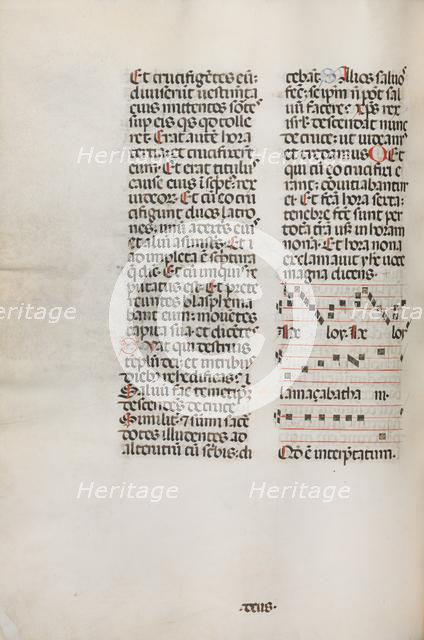 Et crucifigẽtes eũ:
diuiserũt uestimẽta
eius mittentes sorte
sup eis q̃s qd tolle
ret. Erat autẽ hora
tertia: et crucifixerũt
eum. Et erat titulus
cause eius iscp̃t: rex
iudeor. Et cũ eo cru
cifigunt duos latro
nes: unũ a dextris ei
et aliũ a sinistris. Et i
adimpleta ẽ scriptura
q̃ dic̃. Et cũ iniquis
putatus est. Et prete
euntes blasphema
bant eum: mouẽtes
capita sua et dicẽtes
Vah qui destruis
templũ dei: et in tribus
diebus reedificas:
Saluũ fac temetip̃
descendẽs de cruce
Similit̃ 7 sũmi sacer
dotes illudentes ad
alterutrũ cũ scribis: di
cebãt. S Alios saluos
fec̃: seip̃m ñ põt sal
uũ facere. xp̃s rex
isrl̃: descendat nunc
de cruce: ut uideam̃
et credamus C Et
qui cũ eo crucifixi e
rant: conuitiabantur
ei Et fc̃a hora sexta:
tenebre fc̃e sunt per
totã t̃rã usq̃ in horam
nonã. Et hora nona
exclamauit ih̃c uoce
magna dicens.
Heritage
Heritage
Heloy. Heloy
lamaçabatha ni.
Heritage
Heritage
Qd̃ ẽ interp̃tatum.
Heritage
Heritage
·xxus·